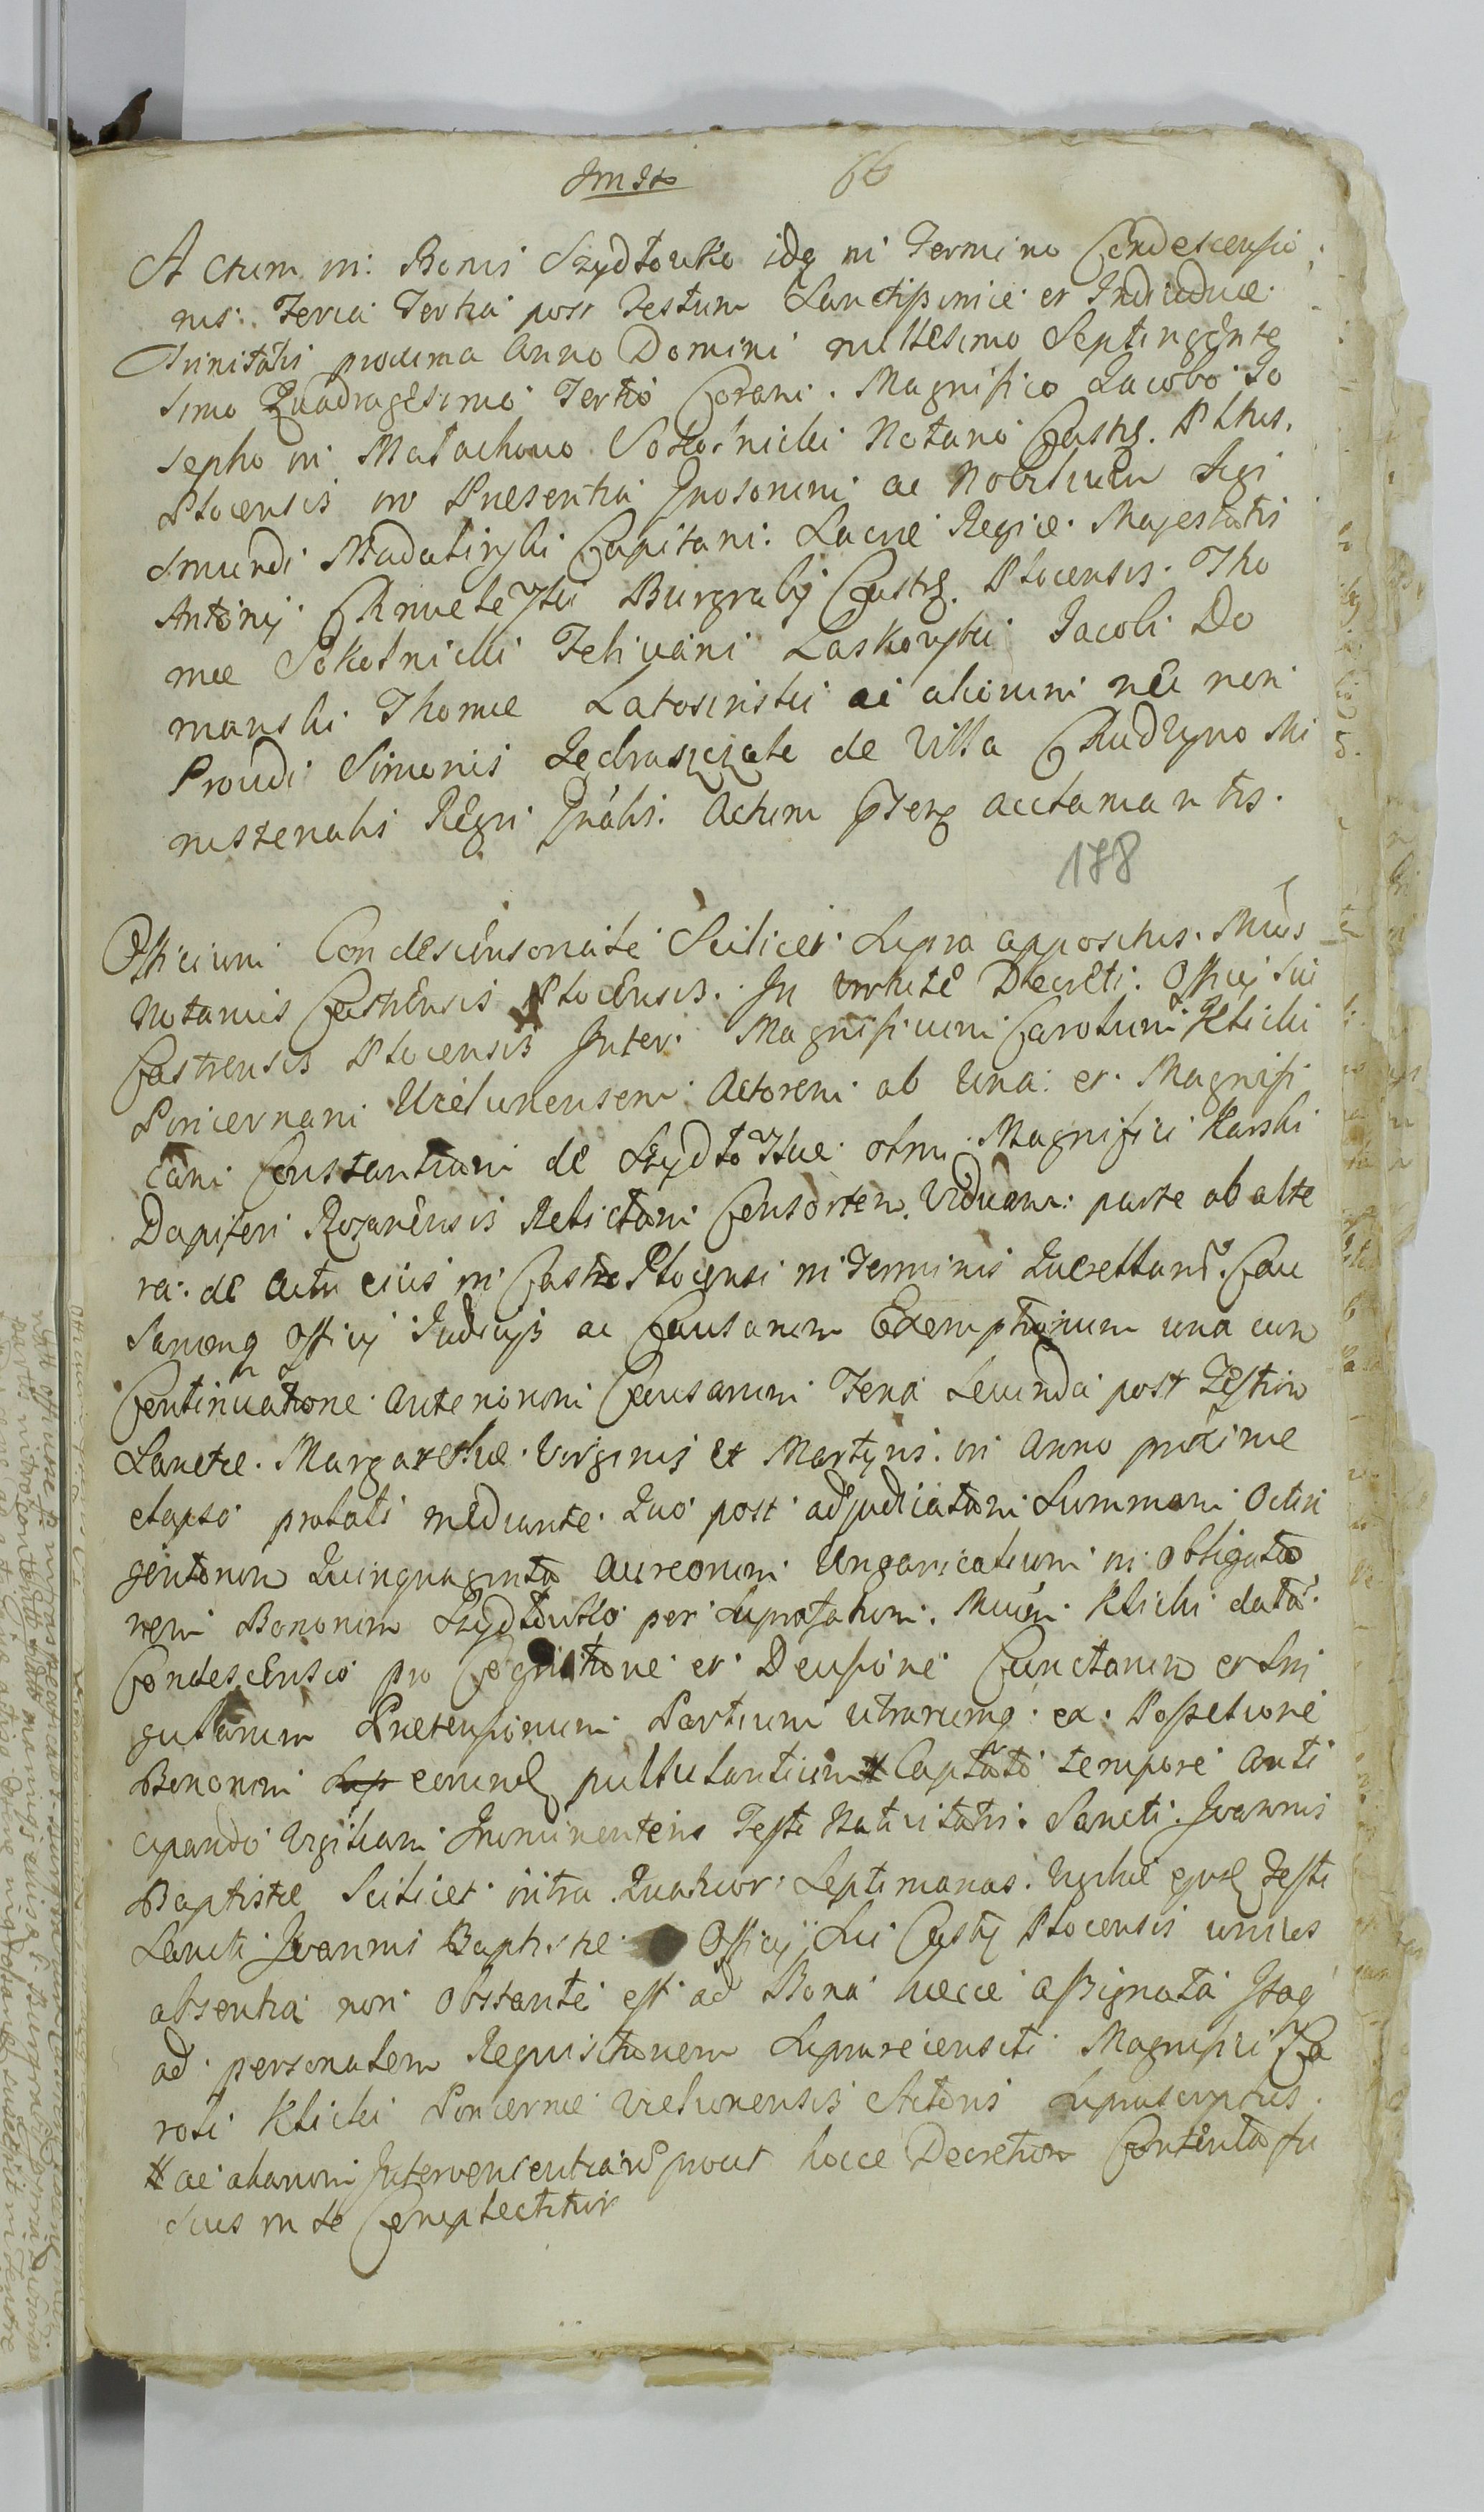 66
Actum in Bonis Szydłowko idq in Termino Condescensio
nis Feria Tertia post Festum Sanctissimae et Individuae
Trinitatis proxima Anno Domini millesimo Septingente
simo Quadragesimo Tertio Coram Magnifico Jacobo Jo
sepho in Małachowo Sokolnicki Notario Castr. Pltus.
Plocensis in Praesentia Gnosorum ac Nobilium Sigi
smundi Madalinski Capitani Sacrae Regiae Majestatis
Antonij Chmielewski Burgrabij Castr. Plocensis Tho
mae Sokolnicki Feliciani Laskowski Jacobi Do
manski Thomae Latosinski ac aliorum nec non
Providi Simonis Jedraszczak de Villa Chudzyno Mi
nisterialis Regni Gnalis Actum Ptens acclamantis.
188
Officium Condescensoriale Scilicet Supra appositus Mcus
Notarius Castrensis Plocensis. In virtute Decreti Officij sui
Castrensis Plocensis Inter Magnificum Carolum Klicki
Pincernam Vielunensem Actorem ab una et Magnifi
cam Constantiam de Szydłowskie olim Magnifici Karski
Dapiferi Rozanensis Relictam Consortem Viduam parte ab alte
ra de actu eius in Castro Plocensi in Terminis Querellarum Cau
sarumq Officij Judicijs ac Causarum Exemptionum una cum
Continuatione anteriorum Causarum Feria Secunda post Festum
Sanctae Margarethae Virginis et Martyris in Anno proxime
elapso prolati mediante quo post adjudicatam Summam Octin
gentorum Quinquaginta Aureorum Ungaricalium in obligatio
nem Bonorum Szydłowko per Supra fatum Mcum Klicki datam
Condescensio pro Cognitione et Decisione Cunctarum et Sin
gularum Praetensionum Partium utrarumq ex Possessione
Bonorum Sup eorund pullulantium # Captato tempore anti
cipando Vigiliam Imminentem Festi Nativitatis Sancti Joannis
Baptistae Scilicet intra Quatuor Septimanas Vigiliae ejusd Festi
Sancti Joannis Baptistae Officij Sui Castr Plocensis unius
absentia non obstante est ad Bona haecce assignata Itaq
ad personalem Requisitionem Supra recensiti Magnifici Ca
roli Klicki Pincernae Vielunensis Actoris suprascriptus
# ac aliarum Intervenientiarum prout hocce Decretum Contenta fu
sius in se Complectitur